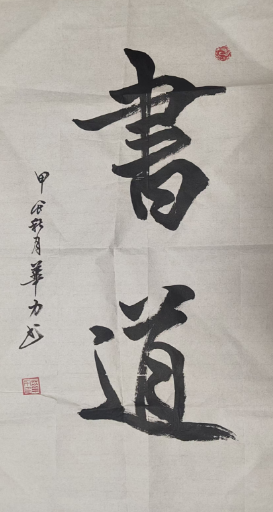 書道
甲辰秋月華力書